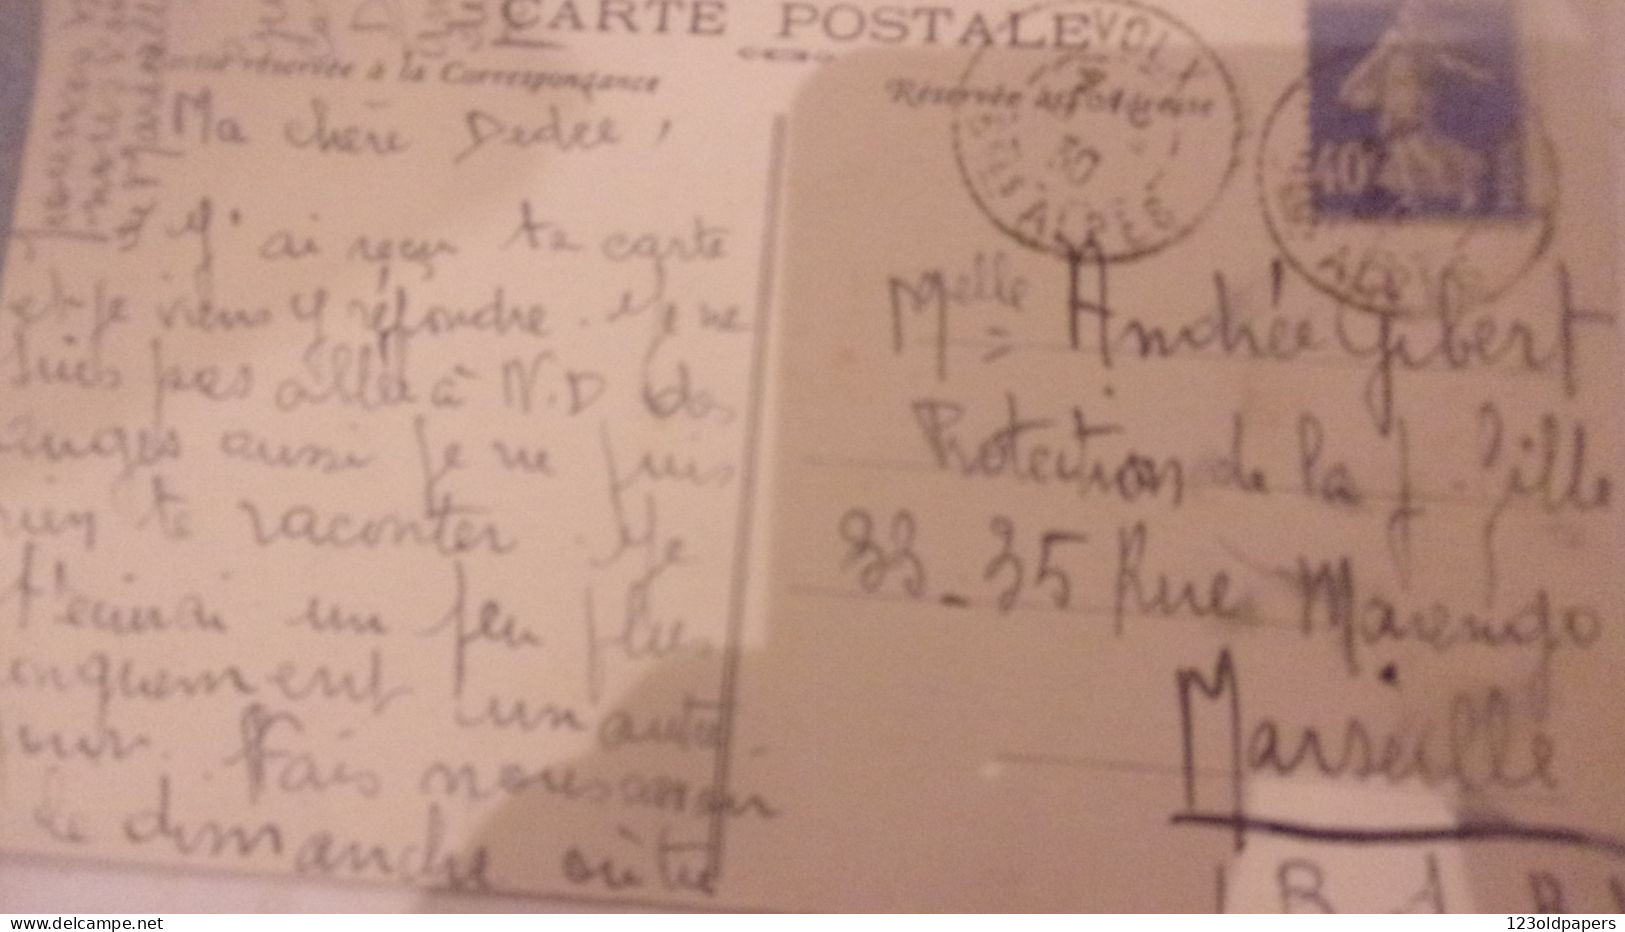 CARTE POSTALE
réservée à la Correspondance
Ma chère Dedée,
J'ai reçu ta carte
et je viens y répondre. Je ne
suis pas allée à N.D des
anges aussi je ne puis
rien te raconter. Je
t'ecrirai un peu plus
longuement un autre
jour. Fais nous savoir
le dimanche où tu
Réservée à l'Adresse
VOLX
30
ALPES
40
Melle Andrée Gibert
Protection de la j. fille
33-35 Rue Marengo
Marseille
B. d R.
123oldpapers